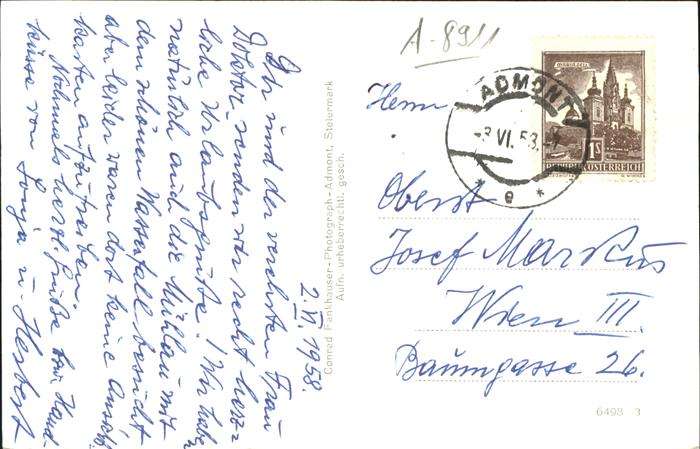 A-8911
Herrn
Oberst
Josef Markus
Wien III.
Baumgasse 26.
ADMONT
-3.VI.58.
* e *
MARIAZELL
1S
REPUBLIK ÖSTERREICH
6498 3
Conrad Fankhauser-Photograph-Admont, Steiermark
Aufn. urheberrechtl. gesch.
2.VI.1958.
Dir und der verehrten Frau
Doktor senden wir recht herz-
liche Urlaubsgrüße! Wir haben
natürlich auch die Mühlau mit
dem schönen Wasserfall besucht
aber leider waren dort keine Ansichts
karten aufzutreiben.
Nochmals herzl. Grüße bzw. Hand-
küsse von Sonja u. Herbert